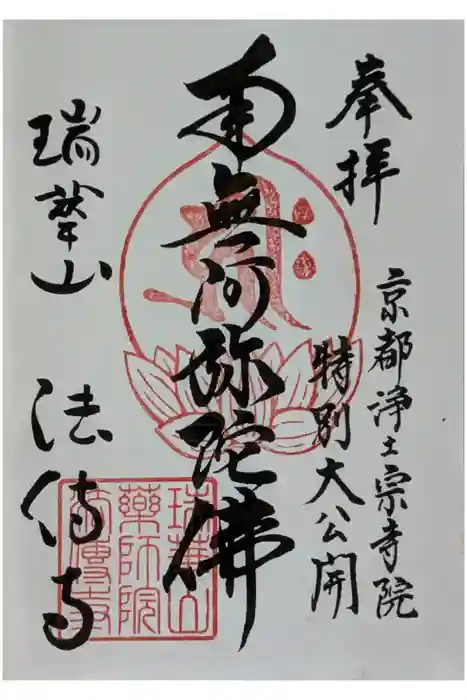 奉拝
京都浄土宗寺院
特別大公開
南無阿弥陀佛
瑞華山
法傳寺
瑞華山
藥師院
法傳寺